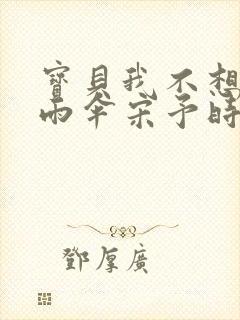 寶貝我不想
雨伞宋予時
鄧厚廣